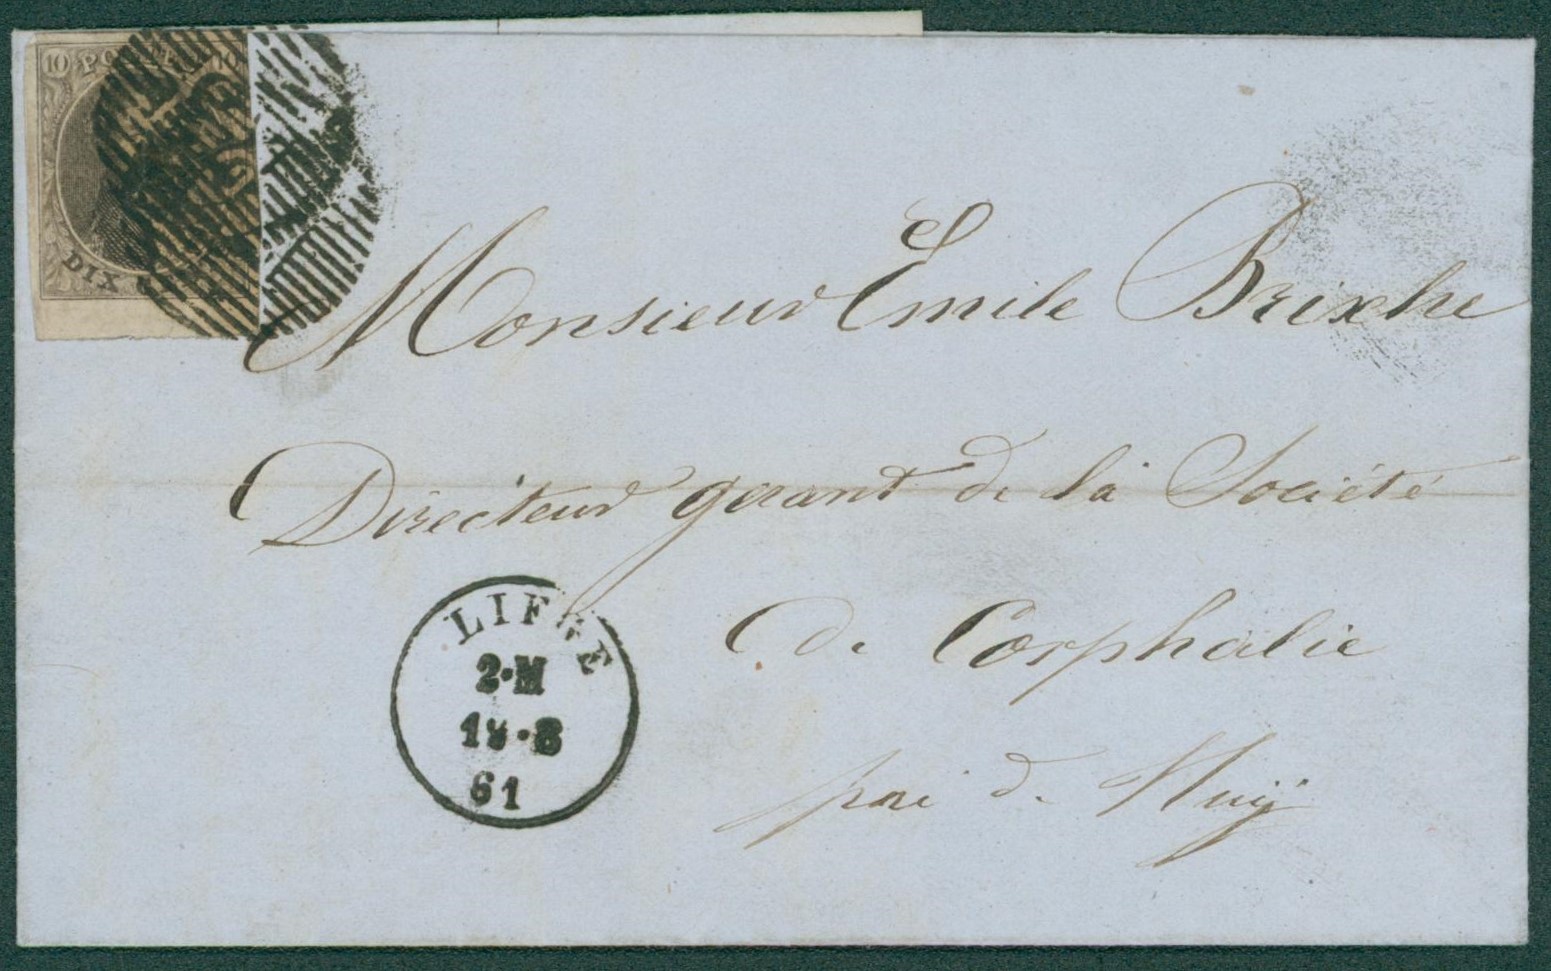 10 POSTES 10
DIX
Monsieur Emile Brixhe
Directeur gerant de la Société
de Corphalie
LIEGE
2·M
8
61
de Huÿ